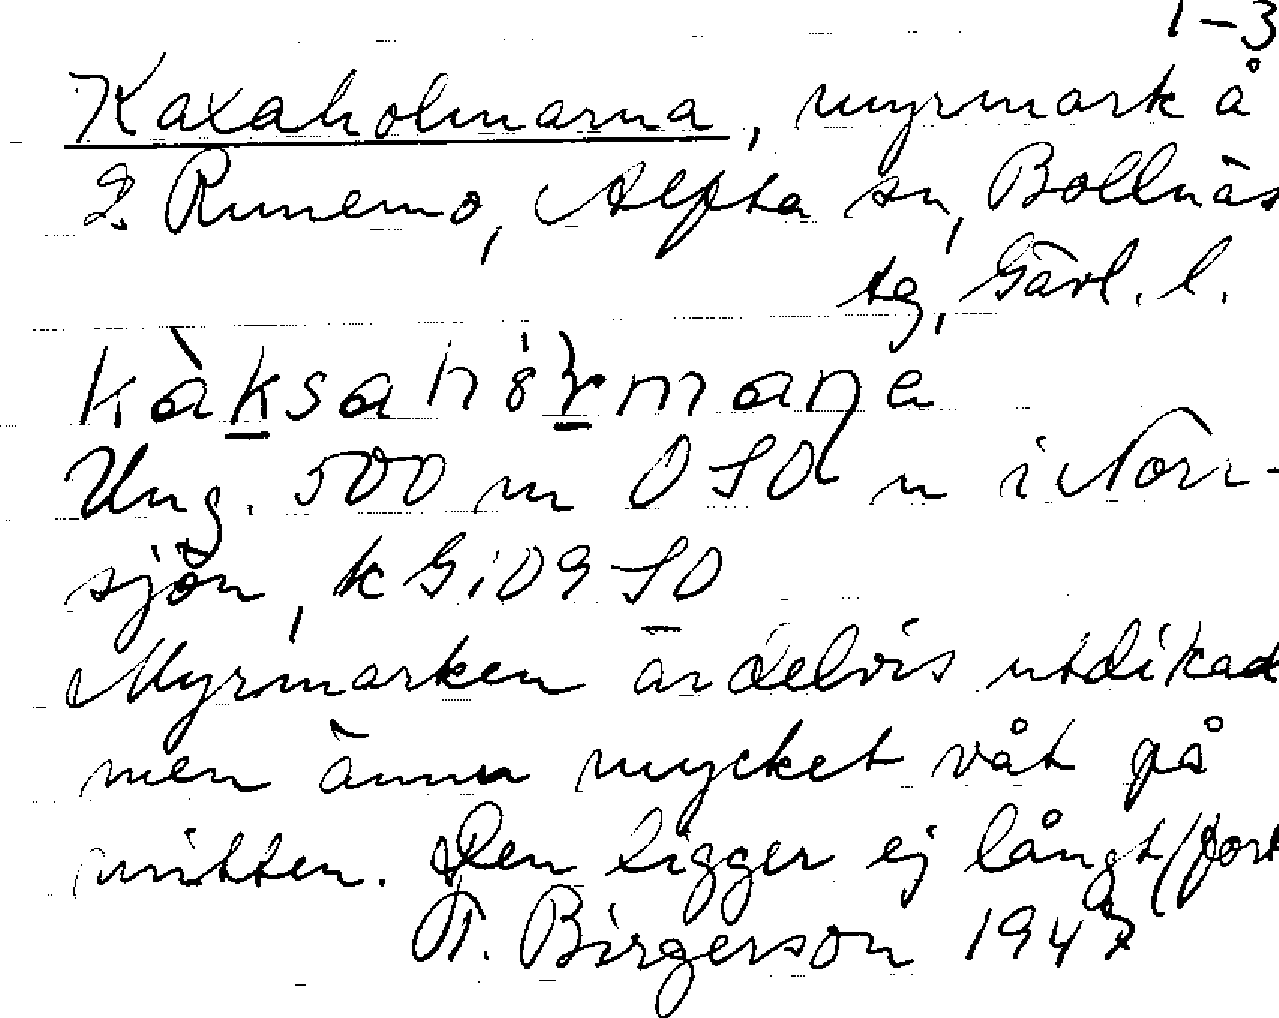 1-3
Kaxaholmarna, myrmark å
S. Runemo, Alfta sn, Bollnäs
tg, Gävl. l.
Ung. 500 m OSO n i Norr-
sjön, k Gi09 SO
Myrmarken är delvis utdikad
men ännu mycket våt på
mitten. Den ligger ej långt (fort
Birgerson 1947